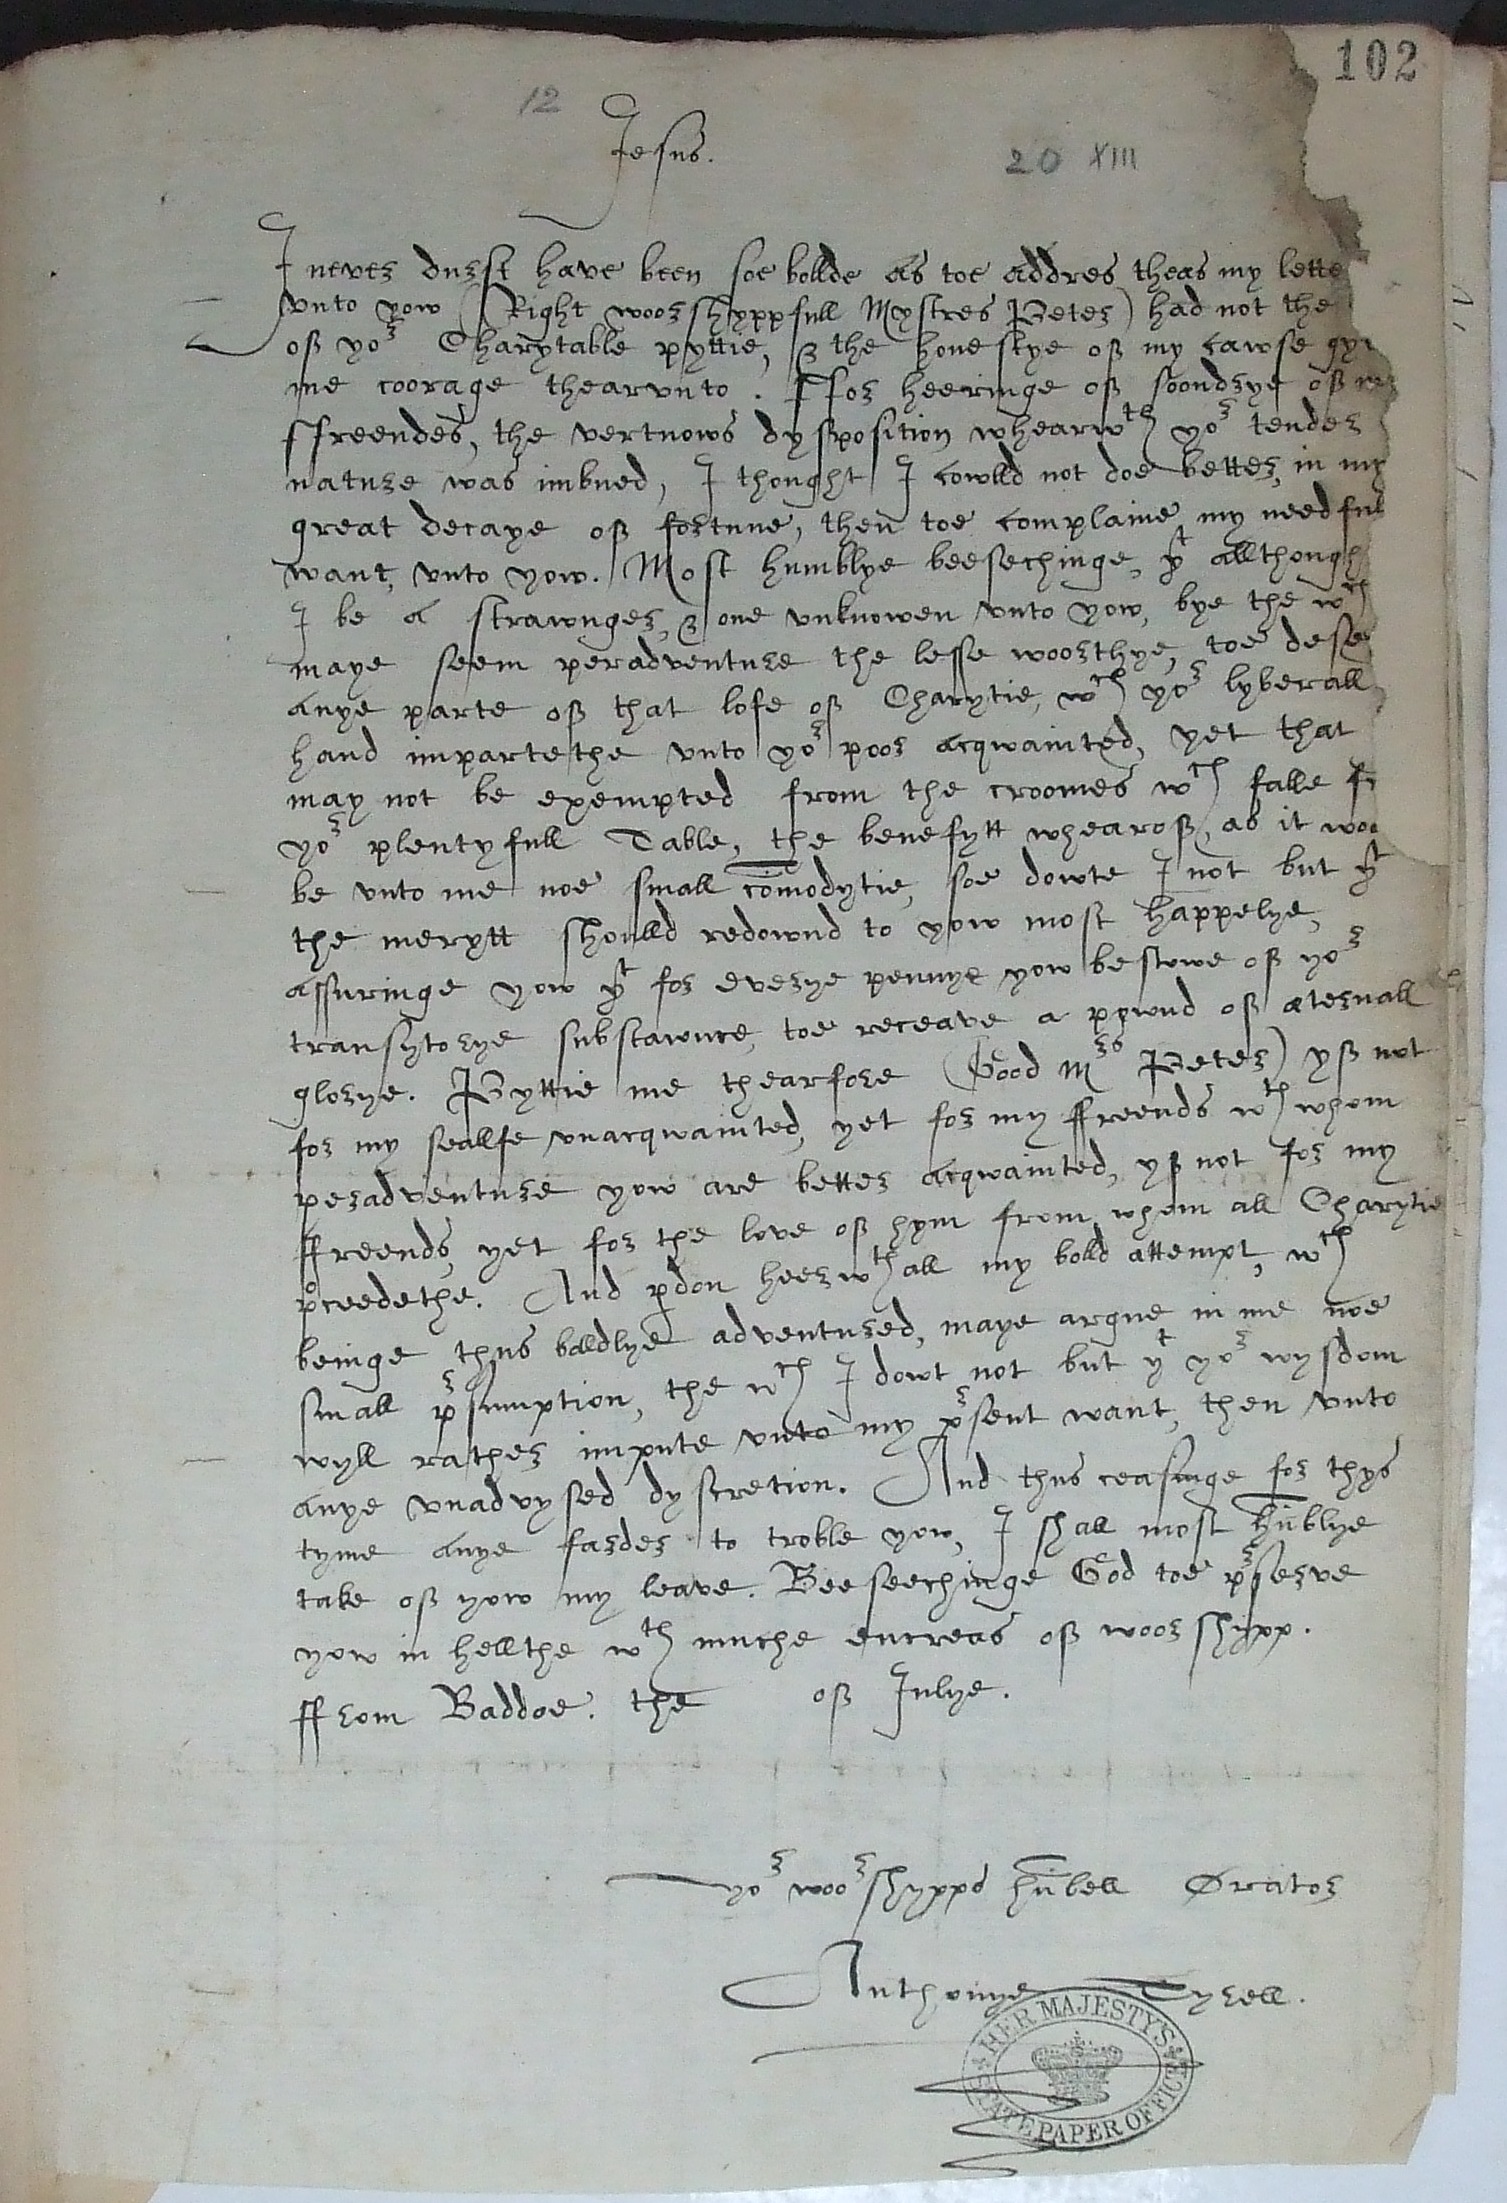 102
12
Jesus.
20 XIII
I never durst have been soe bollde as toe addres theas my lette
vnto yow (Right woorshyppfull Mystres Peter) had not the
off yor Charytable pyttie, & the honestye off my cawse gyv
me coorage thearvnto. ffor heeringe off soondrye off my
ffreendes, the vertuows dyspposition whearwth yor tender
nature was imbued, I thought I cowlld not doe better, in my
great decaye off fortune, then toe complaine my needfull
want, vnto yow. Most humblye beesechinge, yt allthough
I be a strawnger, & one vnknowen vnto yow, bye the wch
maye seem peradventure the lesse woorthye, toe dese
anye parte off that lofe off Charytie, wch yor lyberall
hand impartethe vnto yor poor acqwainted, yet that
may not be exempted from the croomes wch falle fr
yor plentyfull Table, the benefytt whearoff, as it woo
be vnto me noe small cōmodytie, soe dowte I not but yt
the merytt shoulld redownd to yow most happelye,
assuringe yow yt for everye pennye yow bestowe off yor
transytorye substawnce, toe receave a pownd off æternall
glorye. Pyttie me thearfore (Good Mrs Peter) yff not
for my seallfe vnacqwainted, yet for my ffreends wth whom
peradventure yow are better acqwainted, yff not for my
ffreends, yet for the love off hym from whom all Charytie
pceedethe. And pdon heerwthall my bolld attempt, wch
beinge thus bolldlye adventured, maye argue in me noe
small prsumption, the wch I dowt not but yt yor wysdom
wyll rather impute vnto my prsent want, then vnto
anye vnadvysed dyscretion. And thus ceasinge for thys
tyme anye farder to troble yow, I shall most hūblye
take off yow my leave. Beeseechinge God toe prserve
yow in hellthe wth muche encreas off woorshypp.
ffrom Baddoe. the off Julye.
yor woorshypps hūbell Orator
Anthonye Tyrell.
HER MAJESTY'S
STATE PAPER OFFICE